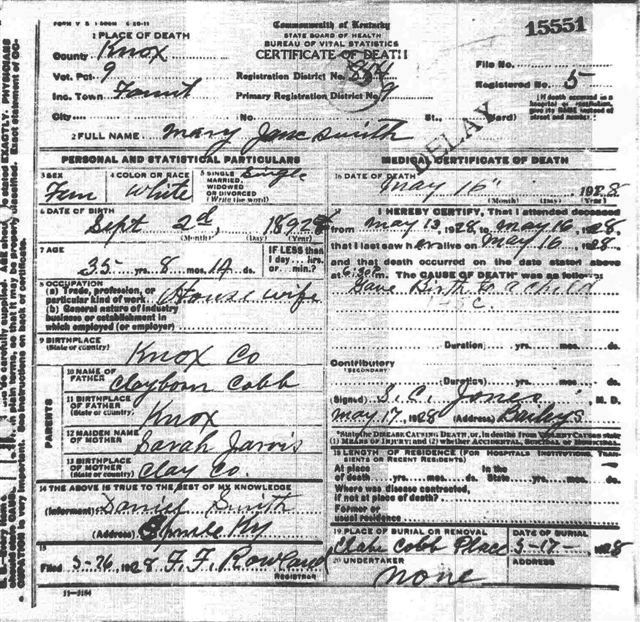 FORM V S 1
15551
Commonwealth of Kentucky
STATE BOARD OF HEALTH
BUREAU OF VITAL STATISTICS
CERTIFICATE OF DEATH
1 PLACE OF DEATH
County Knox
Vot. Pct. 9
Inc. Town
City
Registration District No.
Primary Registration District No. 9
No. St., Ward)
File No.
Registered No. 5
(If death occurred in a hospital or institution, give its NAME instead of street and number.)
DELAY
2 FULL NAME Mary Jane Smith
PERSONAL AND STATISTICAL PARTICULARS
3 SEX Fem
4 COLOR OR RACE White
5 SINGLE MARRIED, WIDOWED OR DIVORCED (Write the word) Single
6 DATE OF BIRTH
Sept 2d, 1892
(Month) (Day) (Year)
7 AGE
35 yrs. 8 mos. 14 ds.
IF LESS than 1 day... hrs. or min.?
8 OCCUPATION
(a) Trade, profession, or particular kind of work House wife
(b) General nature of industry business or establishment in which employed (or employer)
9 BIRTHPLACE
(State or country) Knox Co
PARENTS
10 NAME OF FATHER Clayborn Cobb
11 BIRTHPLACE OF FATHER (State or country) Knox
12 MAIDEN NAME OF MOTHER Sarah Jarvis
13 BIRTHPLACE OF MOTHER (State or country) Clay Co.
14 THE ABOVE IS TRUE TO THE BEST OF MY KNOWLEDGE
(Informant) Daniel Smith
(Address) Ky
15
Filed 5-26, 1928 F. F. Rowland
REGISTRAR
11-3184
MEDICAL CERTIFICATE OF DEATH
16 DATE OF DEATH
May 16" 1928
(Month) (Day) (Year)
I HEREBY CERTIFY, That I attended deceased
from May 13, 1928 to May 16, 1928,
that I last saw her alive on May 16, 1928
and that death occurred on the date stated above
at 6:30 P m. The CAUSE OF DEATH was as follows
Gave Birth to a child
C
Duration) yrs. mos. ds.
Contributory
(SECONDARY)
(Duration) yrs. mos. ds.
(Signed) S. C. Jones M. D.
May 17, 1928 (Address) Baileys
*State the DISEASE CAUSING DEATH, or, in deaths from VIOLENT CAUSES state (1) MEANS OF INJURY; and (2) whether ACCIDENTAL, SUICIDAL, or HOMICIDAL
18 LENGTH OF RESIDENCE (FOR HOSPITALS, INSTITUTIONS, TRANSIENTS OR RECENT RESIDENTS)
At place of death yrs. mos. ds. In the State yrs. mos. ds.
Where was disease contracted,
if not at place of death?
Former or
usual residence
19 PLACE OF BURIAL OR REMOVAL Cobb Place
DATE OF BURIAL 5-17- 1928
20 UNDERTAKER none
ADDRESS